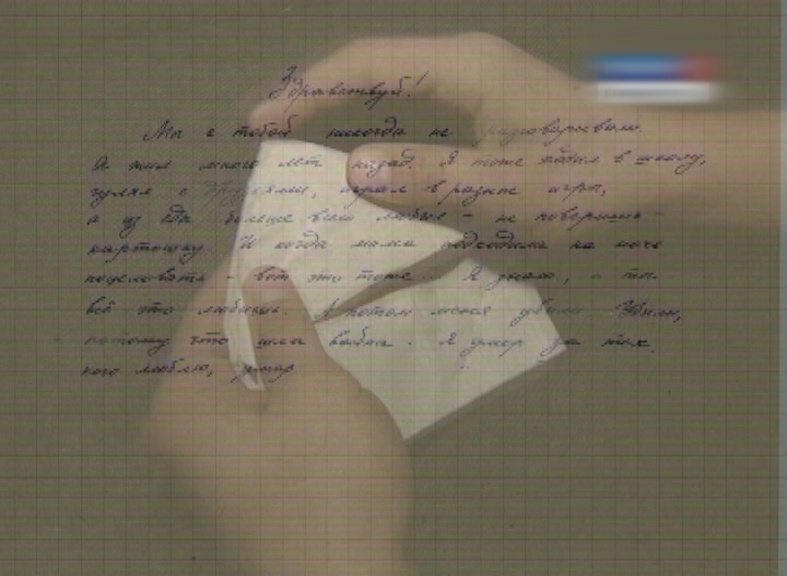 Здравствуй!
Мы с тобой никогда не разговаривали.
Я жил много лет назад. Я тоже ходил в школу,
гулял с друзьями, играл в разные игры,
а из еды больше всего любил - не поверишь -
картошку. И когда мама подходила на ночь
поцеловать - вот это тоже. Я знаю, - ты
всё это любишь. А потом меня убили. Убили,
потому что шла война. Я умер за тех,
кого люблю,